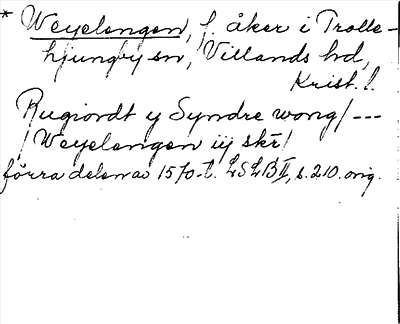 * Weyelangen, f. åker i Trolle-
hjungby sn, Villands hd,
Krist. l.
Rugiordt y Syndre wong/---
/Weyelangen iij skr/
förra delen av 1570-t. LSLB II, s. 210. orig.